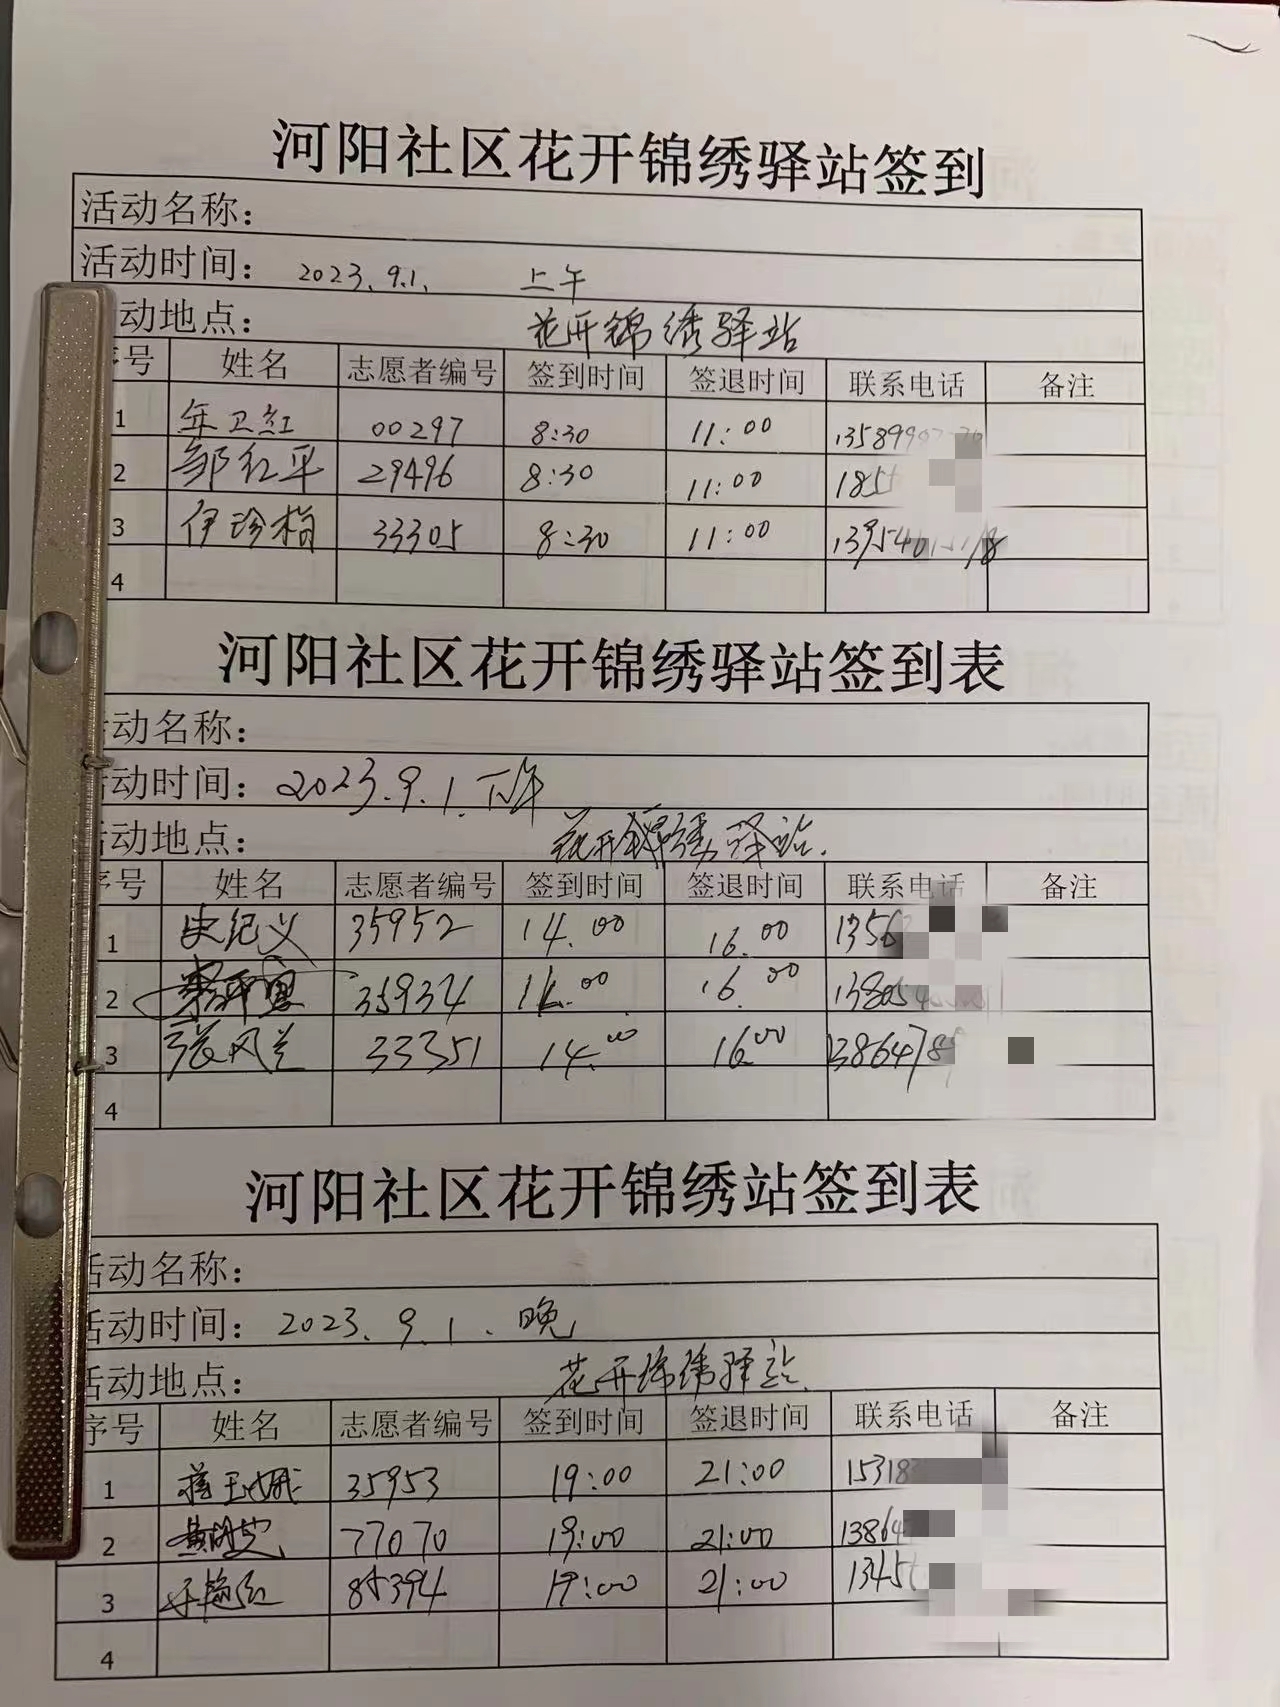 河阳社区花开锦绣驿站签到
活动名称：
活动时间： 2023.9.1. 上午
动地点： 花开锦绣驿站
序号 姓名 志愿者编号 签到时间 签退时间 联系电话 备注
1 年卫红 00297 8:30 11:00
2 邹红平 29496 8:30 11:00 185
3 伊珍梅 33305 8:30 11:00
4
河阳社区花开锦绣驿站签到表
活动名称：
活动时间： 2023.9.1.下午
活动地点： 花开锦绣驿站.
序号 姓名 志愿者编号 签到时间 签退时间 联系电话 备注
1 史纪义 35952 14.00 16.00 1356
2 35934 14.00 16.00 13805
3 张风兰 33351 14.00 1600 1386478
4
河阳社区花开锦绣站签到表
活动名称：
活动时间： 2023.9.1.晚
活动地点： 花开锦绣驿站.
序号 姓名 志愿者编号 签到时间 签退时间 联系电话 备注
1 35953 19:00 21:00 15318
2 77070 19:00 21:00 1386
3 85394 19:00 21:00 1345
4